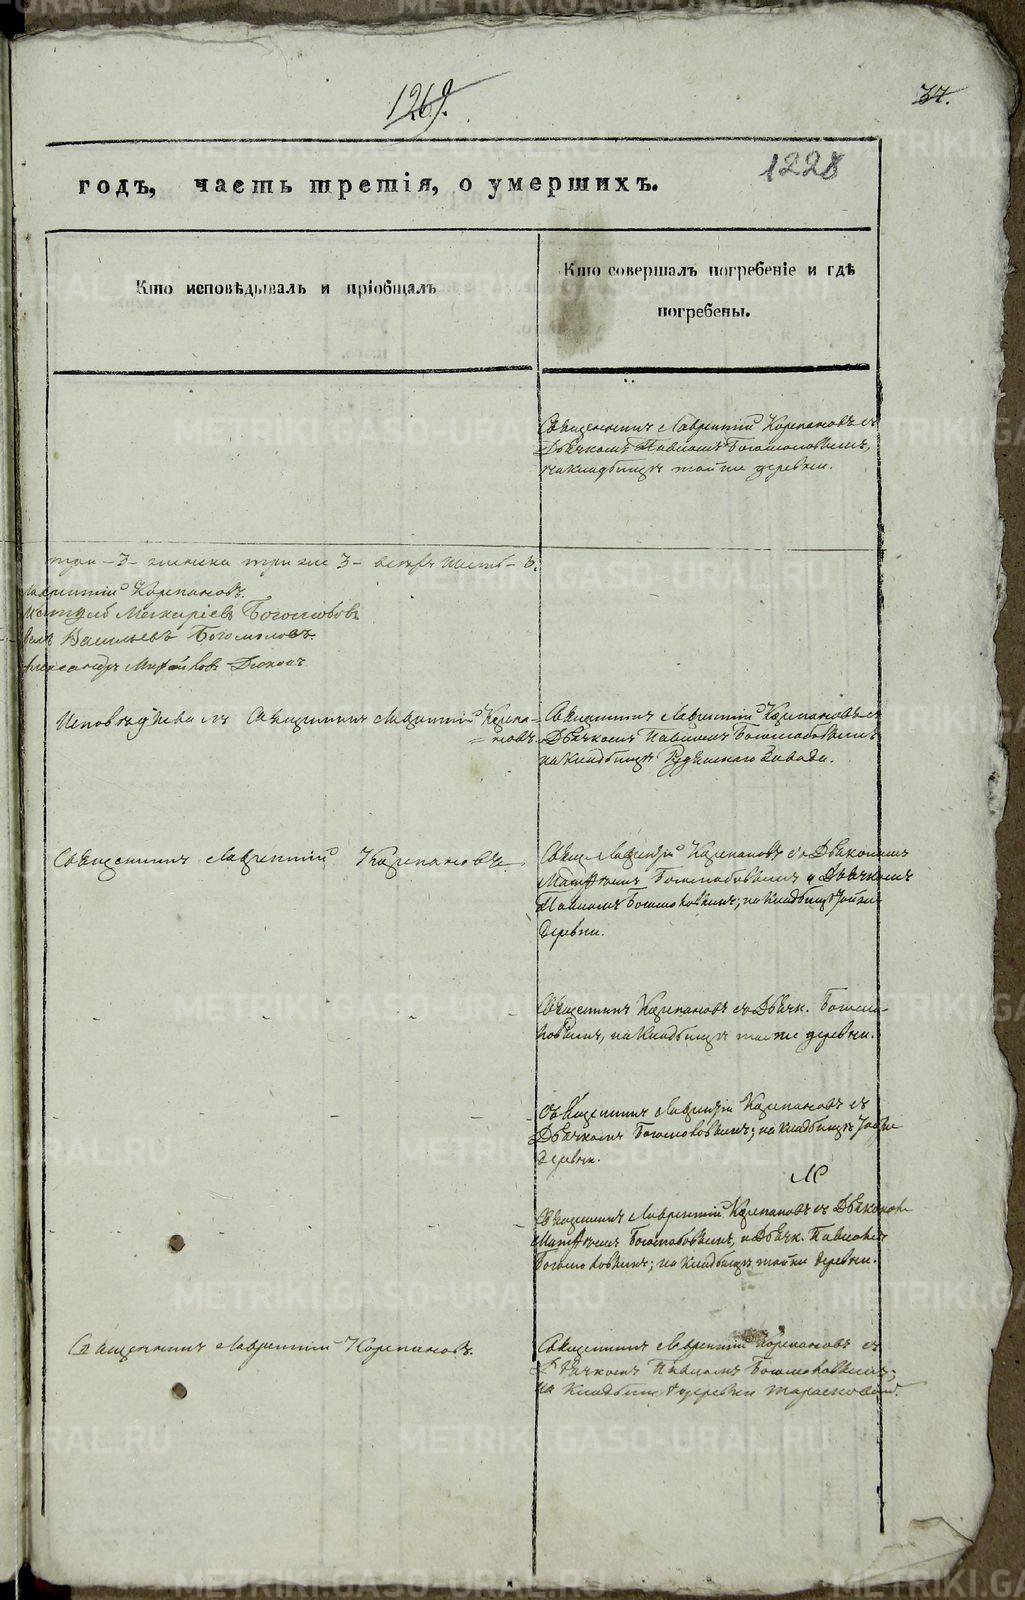 1269.
37.
1228
годъ, часть третія, о умершихъ.
Кто исповѣдывалъ и пріобщалъ
Кто совершалъ погребеніе и гдѣ
погребены.
Священникъ Лаврентій Карепановъ съ
Дьячкомъ Павломъ Богомоловымъ,
на кладбищѣ той же деревни.
три - 3 - женска три же 3 - всехъ шесть - 6.
Лаврентій Карепановъ.
Богословъ
Васильевъ Богомоловъ.
Александръ
Исповѣдывалъ Священникъ Лаврентій Карепа-
новъ.
Священникъ Лаврентій Карепановъ съ
Дьячкомъ Павломъ Богомоловымъ
на кладбищѣ Рудянскаго Завода.
Священникъ Лаврентій Карепановъ.
Свящ. Лаврентій Карепановъ съ Дьякономъ
Матфѣемъ Боголюбовымъ и Дьячкомъ
Павломъ Богомоловымъ; на кладбищѣ той же
деревни.
Священникъ Карепановъ съ Дьячк. Богомо-
ловымъ, на кладбищѣ той же деревни.
Священникъ Лаврентій Карепановъ съ
Дьячкомъ Богомоловымъ; на кладбищѣ той же
деревни.
Священникъ Лаврентій Карепановъ съ Дьякономъ
Матфѣемъ Боголюбовымъ, и Дьячк. Павломъ
Богомоловымъ; на кладбищѣ той же деревни.
Священникъ Лаврентій Карепановъ.
Священникъ Лаврентій Карепановъ съ
Дьячкомъ Павломъ Богомоловымъ;
на кладбищѣ деревни Тарасковой.
METRIKI.GASO-URAL.RU